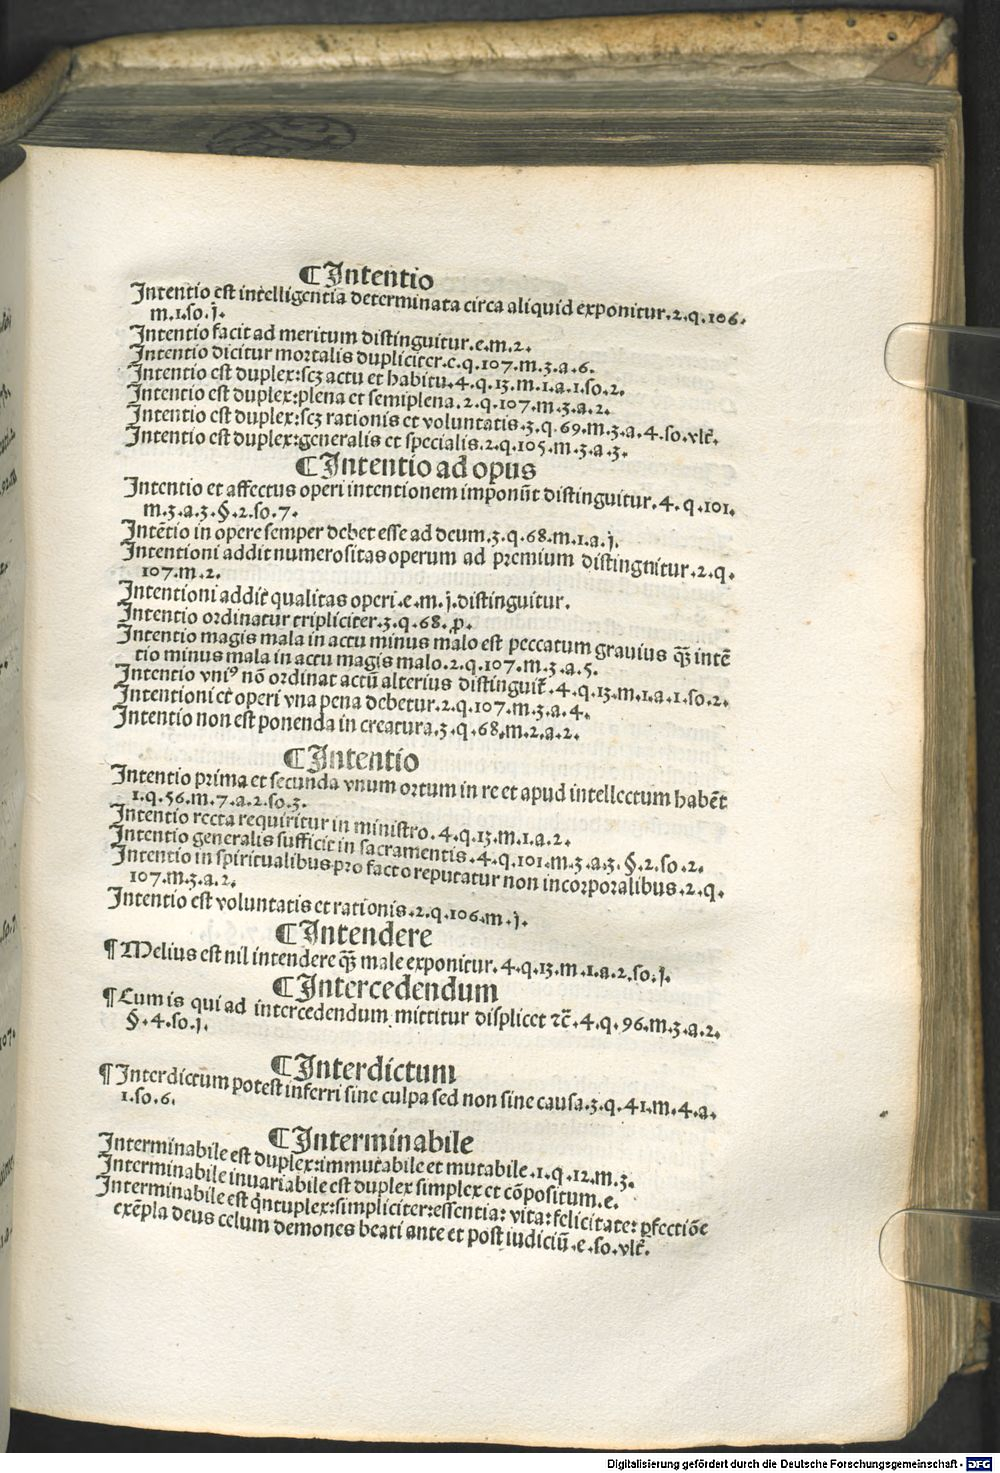 ¶Intentio
Intentio est intelligentia determinata circa aliquid exponitur.2.q.106.
m.1.so.j.
Intentio facit ad meritum distinguitur.e.m.2.
Intentio dicitur mortalis dupliciter.e.q.107.m.3.a.6.
Intentio est duplex:scꝫ actu et habitu.4.q.13.m.1.a.1.so.2.
Intentio est duplex:plena et semiplena.2.q.107.m.3.a.2.
Intentio est duplex:scꝫ rationis et voluntatis.3.q.69.m.3.a.4.so.vlt̄.
Intentio est duplex:generalis et specialis.2.q.105.m.3.a.3.
¶Intentio ad opus
Intentio et affectus operi intentionem imponūt distinguitur.4.q.101.
m.3.a.3.§.2.so.7.
Intētio in opere semper debet esse ad deum.3.q.68.m.1.a.j.
Intentioni addit numerositas operum ad premium distinguitur.2.q.
107.m.2.
Intentioni addit qualitas operi.e.m.j.distinguitur.
Intentio ordinatur tripliciter.3.q.68.ꝑ.
Intentio magis mala in actu minus malo est peccatum grauius qꝫ̄ intē
tio minus mala in actu magis malo.2.q.107.m.3.a.5.
Intentio vniꝰ nō ordinat actū alterius distinguit̄.4.q.13.m.1.a.1.so.2.
Intentioni et operi vna pena debetur.2.q.107.m.3.a.4.
Intentio non est ponenda in creatura.3.q.68.m.2.a.2.
¶Intentio
Intentio prima et secunda vnum ortum in re et apud intellectum habēt
1.q.56.m.7.a.2.so.3.
Intentio recta requiritur in ministro.4.q.13.m.1.a.2.
Intentio generalis sufficit in sacramentis.4.q.101.m.3.a.3.§.2.so.2.
Intentio in spiritualibus pro facto reputatur non incorporalibus.2.q.
107.m.3.a.2.
Intentio est voluntatis et rationis.2.q.106.m.j.
¶Intendere
¶Melius est nil intendere qꝫ̄ male exponitur.4.q.13.m.1.a.2.so.j.
¶Intercedendum
¶Cum is qui ad intercedendum mittitur displicet ⁊c̄.4.q.96.m.3.a.2.
§.4.so.j.
¶Interdictum
¶Interdictum potest inferri sine culpa sed non sine causa.3.q.41.m.4.a.
1.so.6.
¶Interminabile
Interminabile est duplex:immutabile et mutabile.1.q.12.m.3.
Interminabile inuariabile est duplex simplex et cōpositum.e.
Interminabile est q̄ntuplex:simpliciter:essentia:vita:felicitate:ꝑfectiōe
exēpla deus celum demones beati ante et post iudiciū.e.so.vlt̄.
Digitalisierung gefördert durch die Deutsche Forschungsgemeinschaft - DFG